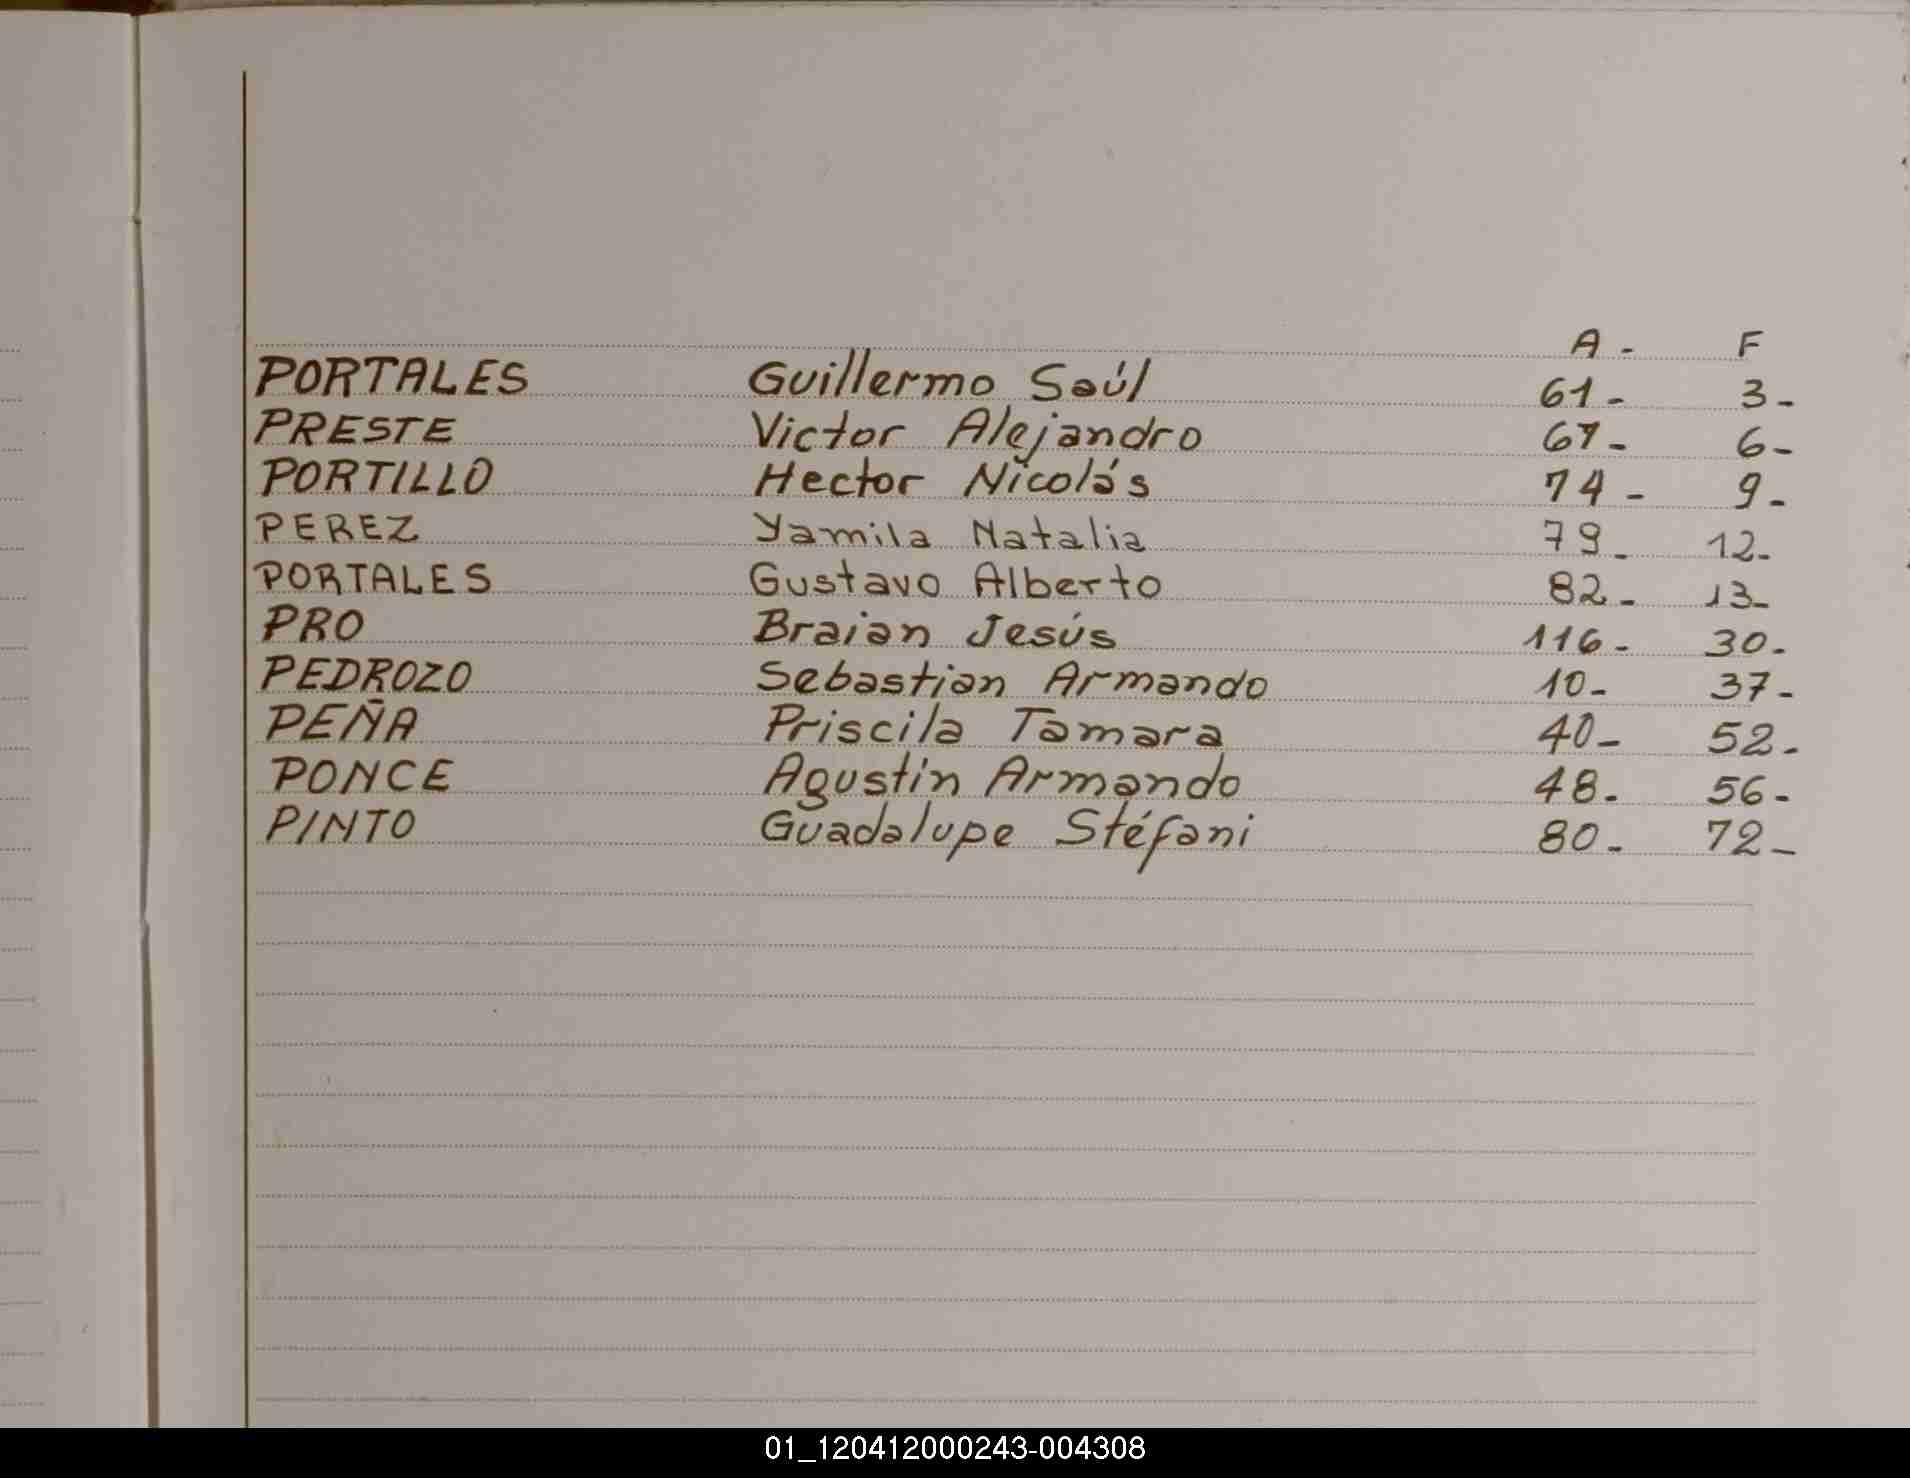 A - F
PORTALES Guillermo Saúl 61- 3-
PRESTE Victor Alejandro 67- 6-
PORTILLO Hector Nicolás 74- 9-
PEREZ Yamila Natalia 79- 12-
PORTALES Gustavo Alberto 82- 13-
PRO Braian Jesús 116- 30-
PEDROZO Sebastian Armando 10- 37-
PEÑA Priscila Tamara 40- 52-
PONCE Agustin Armando 48- 56-
PINTO Guadalupe Stéfani 80- 72-
01_120412000243-004308